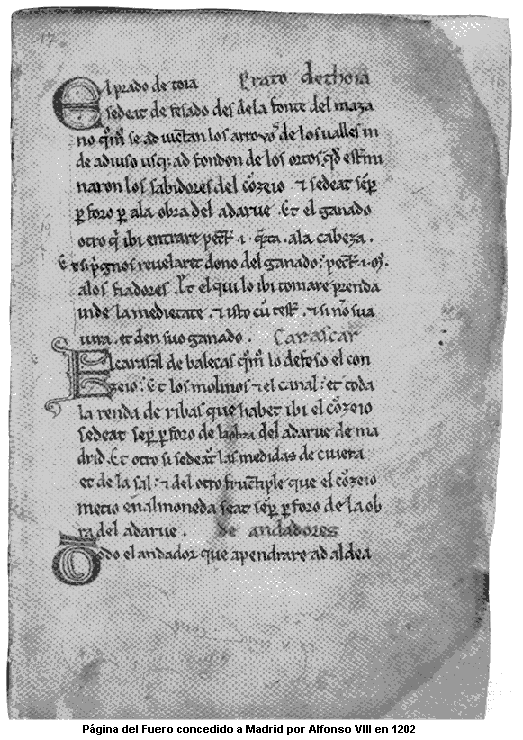 17
El prado de toia Prato de thoia
sedeat defesado des de la fonte del maza
no q̃m se ad iuctan los arroyos de los ualles in
de adiuso usq; ad fondon de los ortos, q̃d est̃mi
naron los sabidores del cõzeio. ⁊ sedeat sẽp̃
p̲ foro p̲ ala obra del adarue. Et el ganado
otro q̃ ibi entrare pect̃ .i. q̃rta. ala cabeza.
del ganado: pect̃ .i. m̃.
alos fiadores. Et el qui lo ibi tomare prenda
inde la medietate. ⁊ isto cũ test̃. ⁊ si nõ sua
iura. et den suo ganado. Carascar
El carascal de balecas q̃m lo defeso el con
zeio: Et los molinos ⁊ el canal: et toda
la renda de ribas que habet ibi el cõzeio
sedeat sẽp̃ p̲ foro de la obra del adarue de ma
drid. Et otro si sedeãt las medidas de ciuera
et de la sal: ⁊ del otro que el cõzeio
metio en almoneda seat sẽp̃ p̲ foro de la ob
ra del adarue. de andadores
Todo el andador que apendrare ad aldea
Página del Fuero concedido a Madrid por Alfonso VIII en 1202